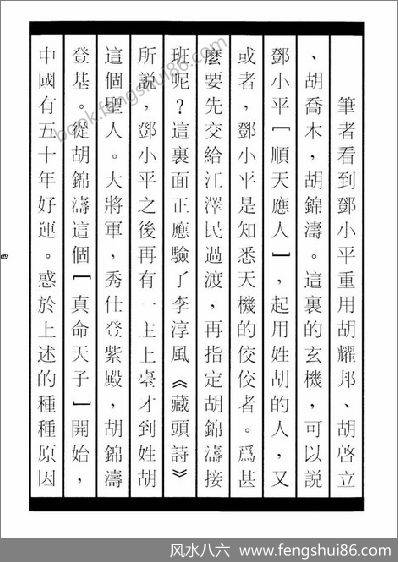 筆者看到鄧小平重用胡耀邦、胡啓立
、胡喬木，胡錦濤。這裏的玄機，可以說
鄧小平「順天應人」，起用姓胡的人，又
或者，鄧小平是知悉天機的佼佼者。爲甚
麼要先交給江澤民過渡，再指定胡錦濤接
班呢？這裏面正應驗了李淳風《藏頭詩》
所說，鄧小平之後再有一主上臺才到姓胡
這個聖人。大將軍，秀仕登紫殿，胡錦濤
登基。從胡錦濤這個「真命天子」開始，
中國有五十年好運。惑於上述的種種原因
book.fengshui86.com
风水八六 | www.fengshui86.com